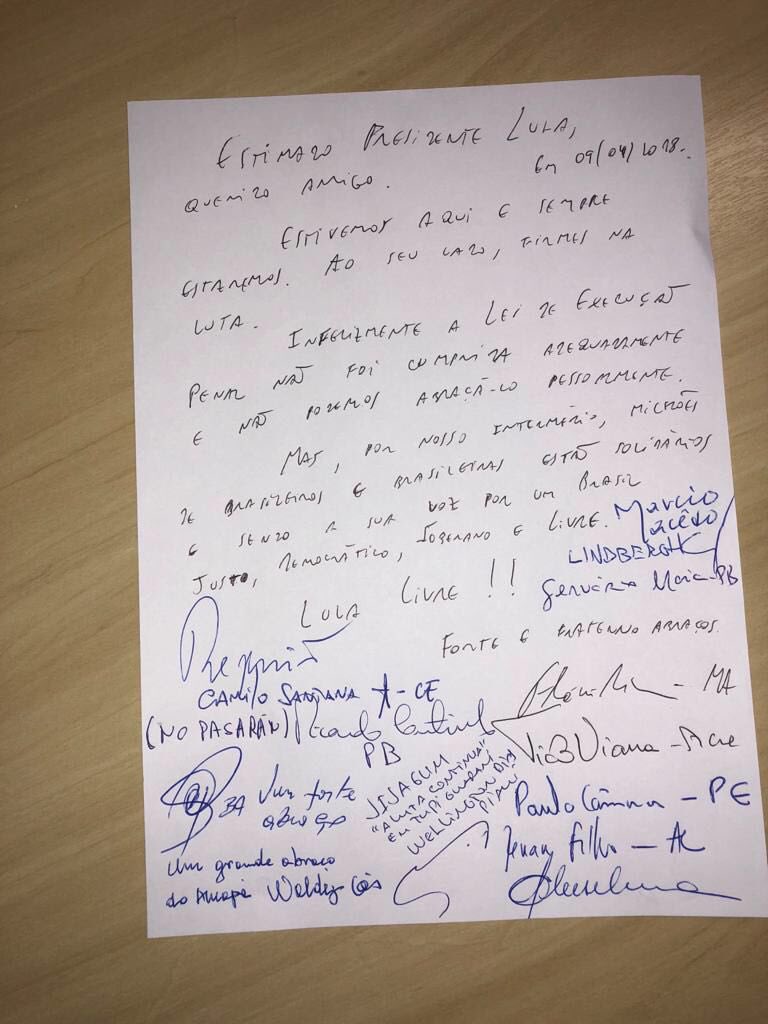 Estimado Presidente Lula,
Em 09/04/2018.
Querido amigo.
Estivemos aqui e sempre
estaremos. Ao seu lado, firmes na
luta.
Infelizmente a Lei de Execução
Penal não foi cumprida adequadamente
e não podemos abraçá-lo pessoalmente.
Mas, por nosso intermédio, milhões
de brasileiros e brasileiras estão solidários
e sendo a sua voz por um Brasil
justo, democrático, soberano e livre.
Marcio
Macêdo
LINDBERGH
Gervásio Maia - PB
Lula Livre !!
Forte e fraterno abraços.
Requião
CAMILO SANTANA - CE
- MA
(NO PASARÁN) Ricardo Coutinho
PB
Tião Viana - Acre
JIJAGUM
"A LUTA CONTINUA"
EM TUPI GUARANI
WELLINGTON DIAS
PIAUÍ
BA Um forte
abraço
Paulo Câmara - PE
Renan Filho - AL
Um grande abraço
do Amapá Waldez Góes